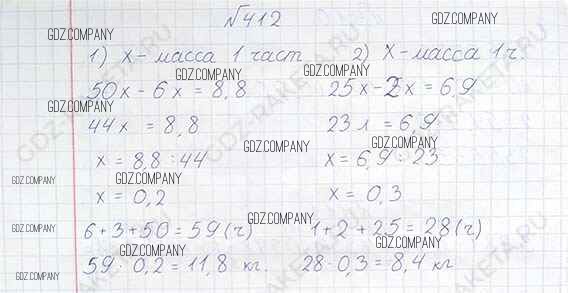 √412
1) x - масса 1 част 2) x - масса 1 ч.
50x - 6x = 8,8 25x - 2x = 6,9
44x = 8,8 23 л = 6,9
x = 8,8 : 44 x = 6,9 : 23
x = 0,2 x = 0,3
6 + 3 + 50 = 59 (ч) 1 + 2 + 25 = 28 (ч)
59 · 0,2 = 11,8 кг. 28 · 0,3 = 8,4 кг
GDZ.COMPANY
GDZ.COMPANY
GDZ.COMPANY
GDZ.COMPANY
GDZ.COMPANY
GDZ.COMPANY
GDZ.COMPANY
GDZ.COMPANY
GDZ.COMPANY
GDZ.COMPANY
GDZ.COMPANY
GDZ.COMPANY
GDZ.COMPANY
GDZ-RAKETA.RU